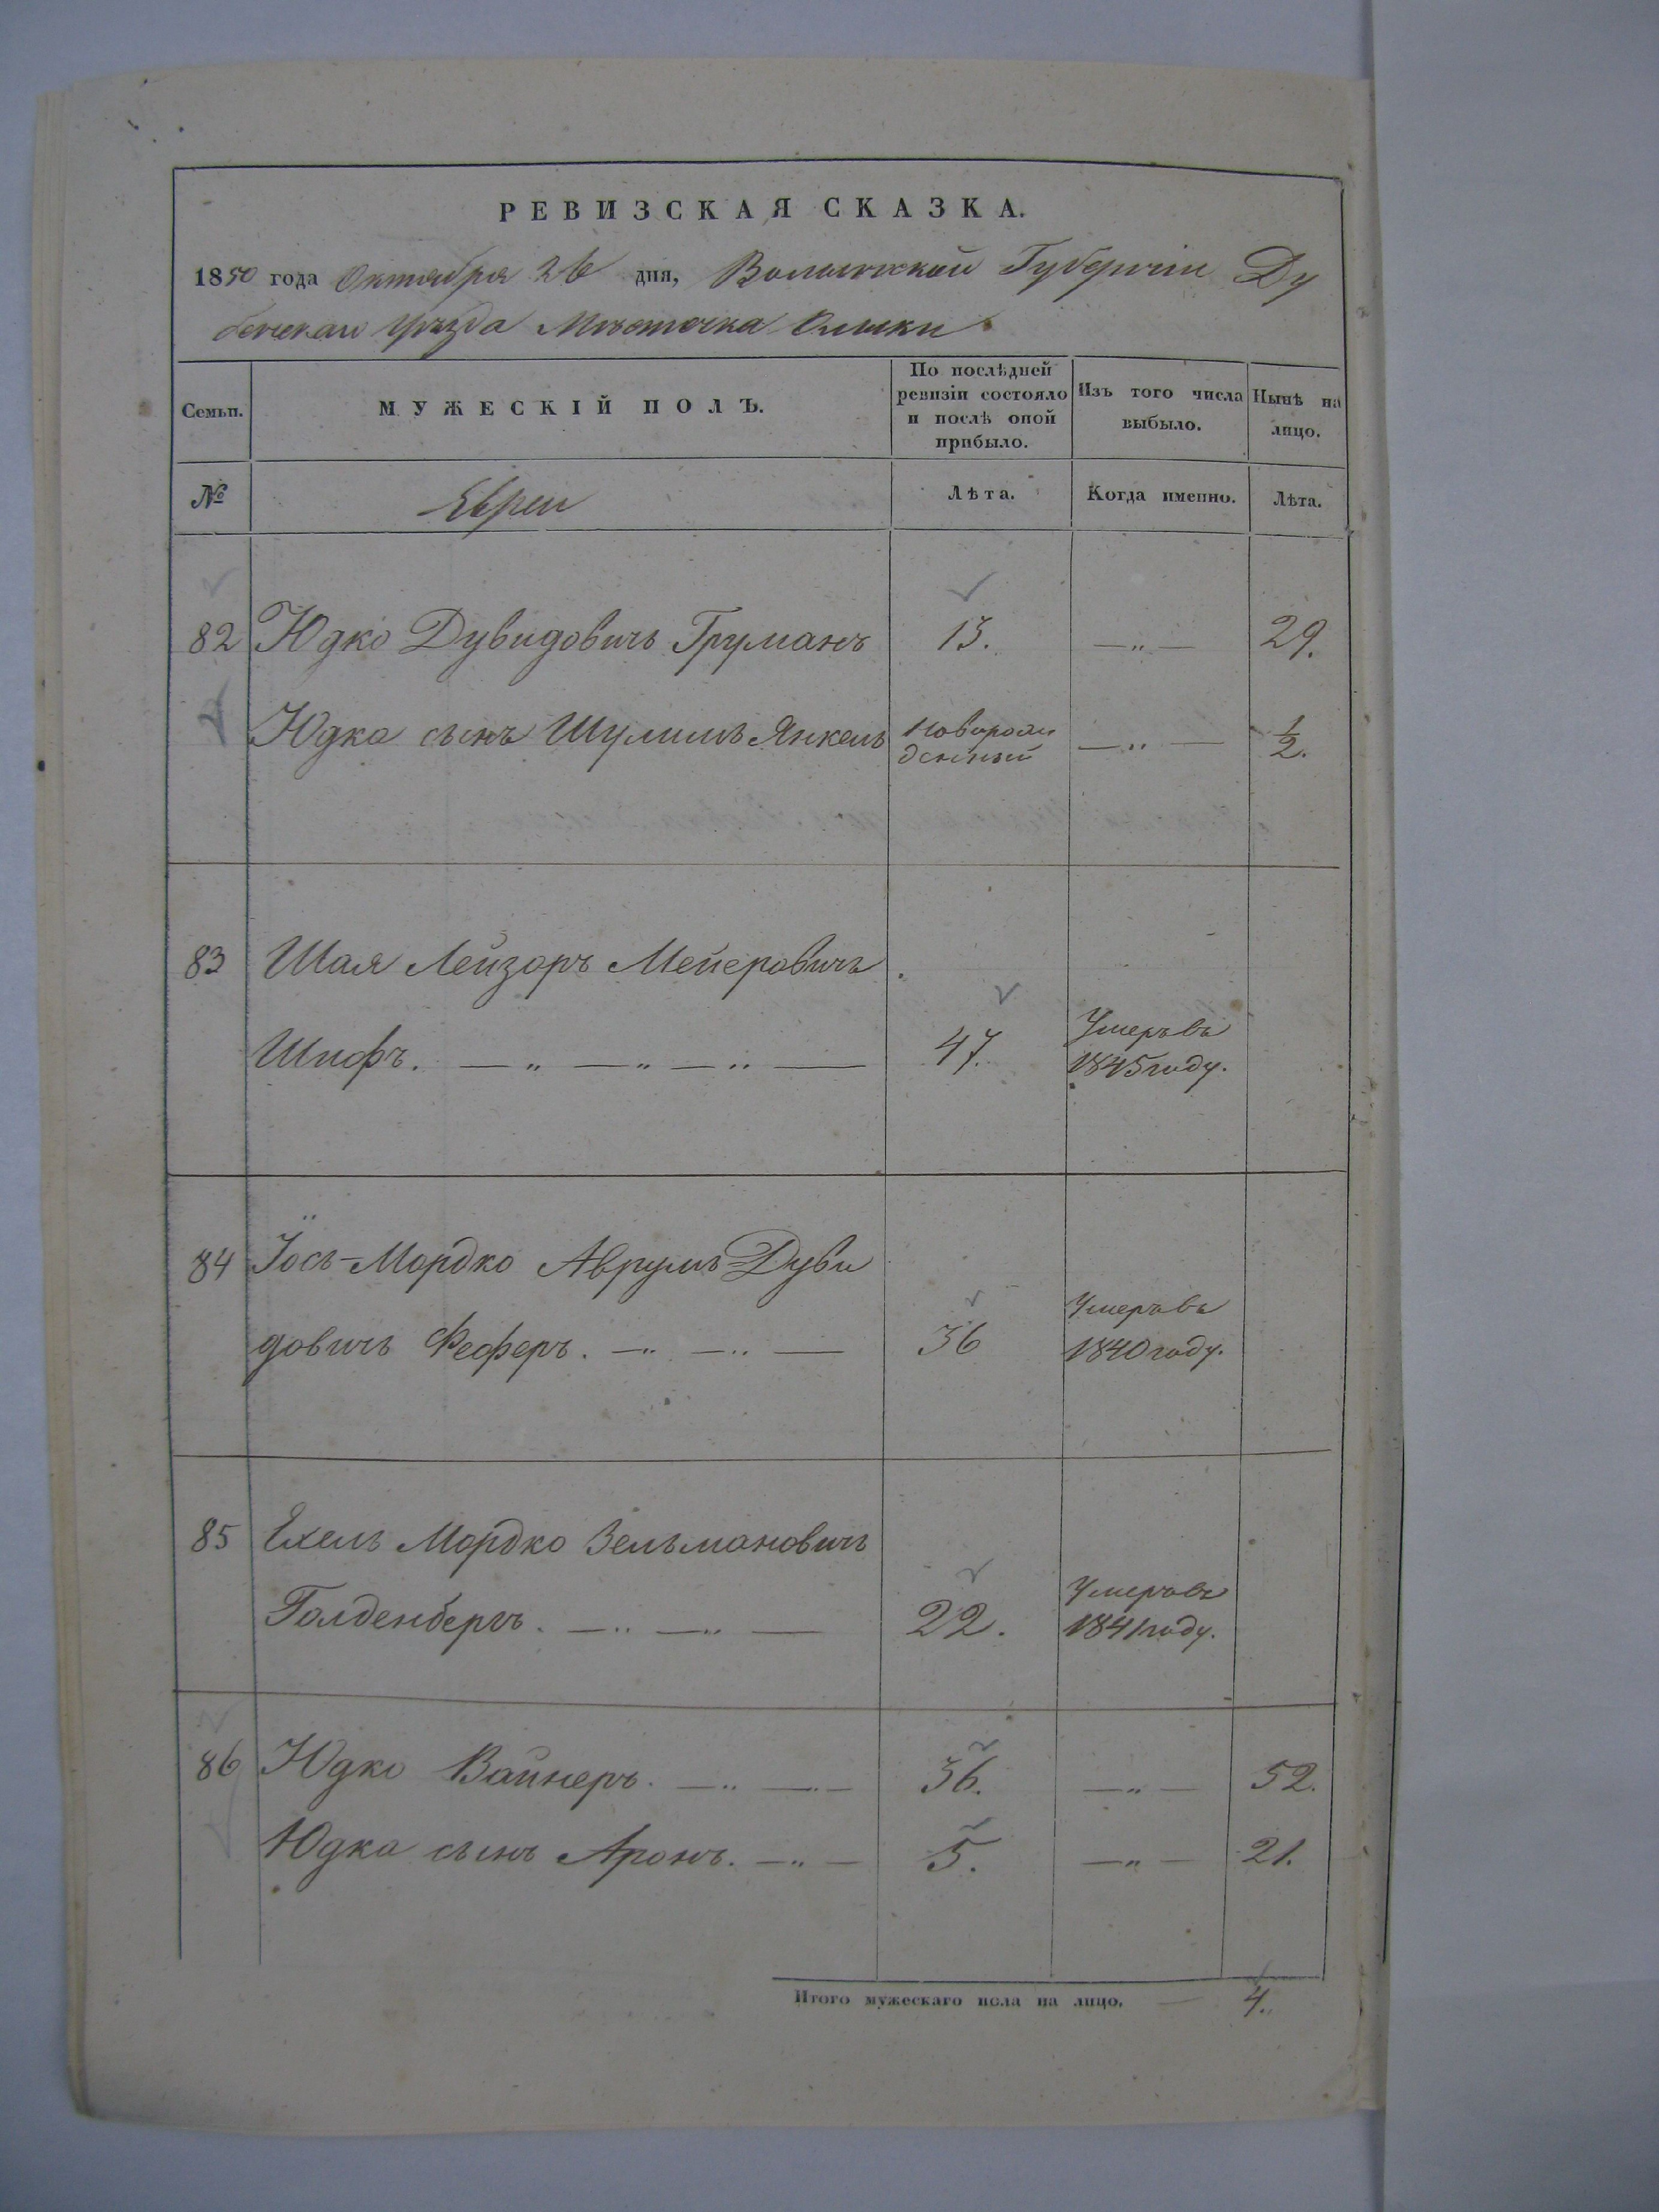 РЕВИЗСКАЯ СКАЗКА.
1850 года Октября 26 дня, Волынской Губерніи Ду
бенскаго уѣзда Мѣстечка Олыки
Семьи. МУЖЕСКІЙ ПОЛЪ. По послѣдней ревизіи состояло и послѣ оной прибыло. Изъ того числа выбыло. Нынѣ на лицо.
№ Евреи Лѣта. Когда именно. Лѣта.
82 Юдко Дувидовичъ Груманъ 13. —„— 29.
Юдка сынъ Шулимъ Янкель Новорож
денный —„— ½.
83 Шая Лейзоръ Мейеровичъ
Шифъ. —„—„—„— 47. Умеръ въ
1845 году.
84 Іось-Мордко Аврумъ-Дуви
довичъ Феферъ. —„—„— 36 Умеръ въ
1840 году.
85 Ехель Мордко Зельмановичъ
Голденбергъ. —„—„— 22. Умеръ въ
1841 году.
86 Юдко Вайнеръ. —„—„— 36. —„— 52.
Юдка сынъ Аронъ. —„— 5. —„— 21.
Итого мужескаго пола на лицо. — 4.